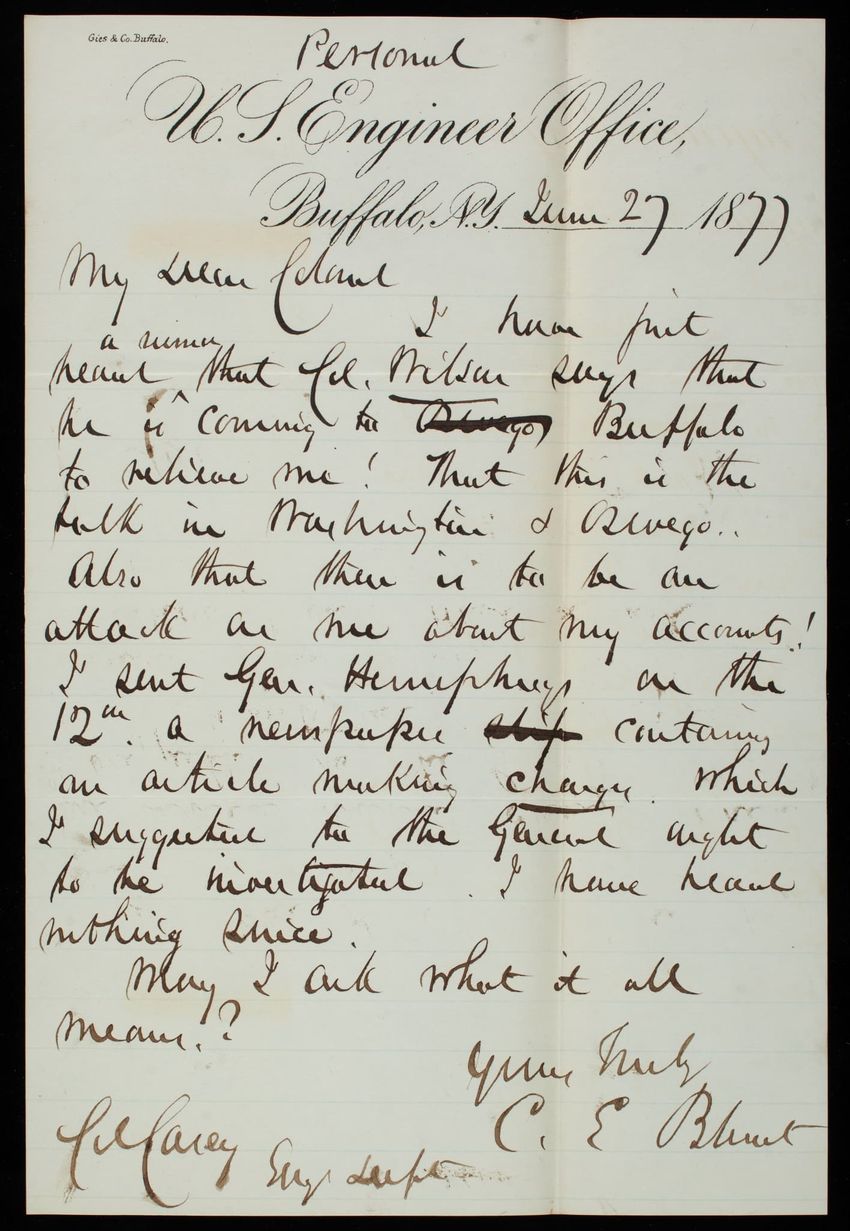 Gies & Co. Buffalo.
Personal
U. S. Engineer Office,
Buffalo, N.Y. June 27 1877
My dear Colonel
I have just
a rumor
heard that Col. Wilson says that
he is coming to Oswego Buffalo
to relieve me! That this is the
talk in Washington & Oswego..
Also that there is to be an
attack on me about my accounts!
I sent Gen. Humphreys on the
12th. a newspaper slip containing
an article making charges. Which
I suggested to the General ought
to be investigated. I have heard
nothing since.
May I ask what it all
means.?
Yours Truly
C. E Blunt
Col Casey
Engr Dept